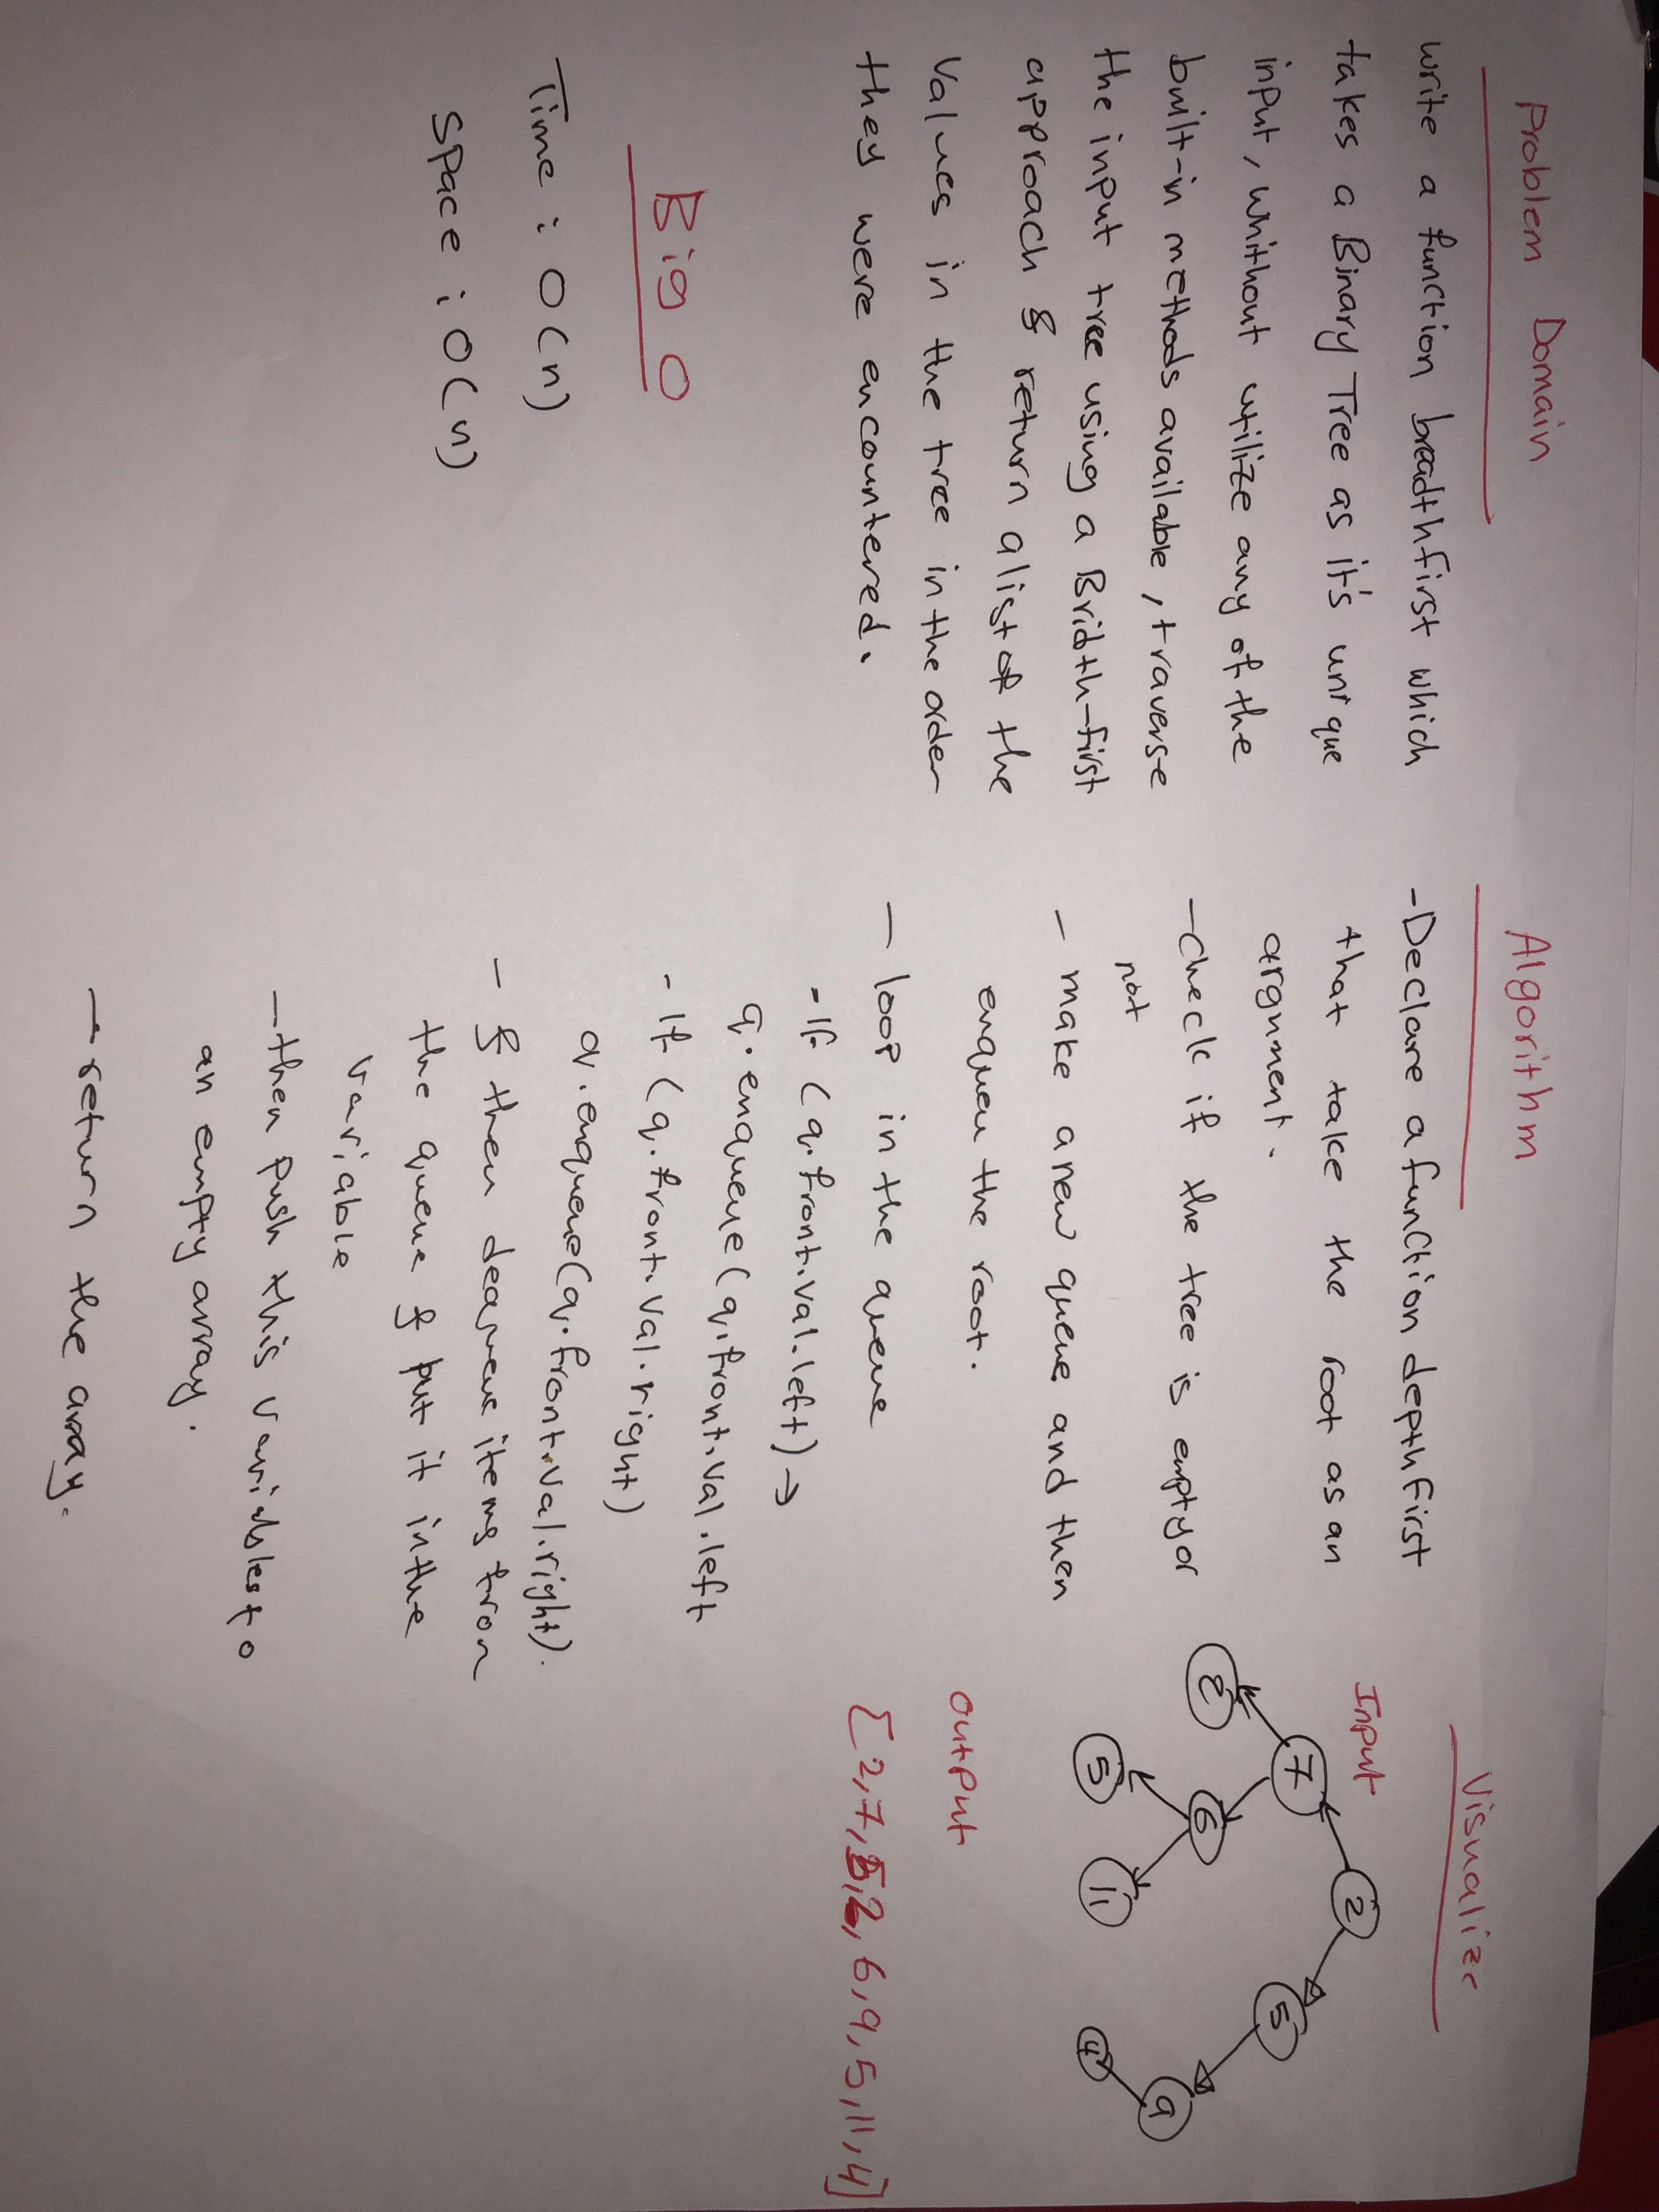 Problem Domain
write a function breadthfirst which
takes a Binary Tree as it's unique
input, whithout utilize any of the
built-in methods available, traverse
the input tree using a Bridth-first
approach & return a list of the
values in the tree in the order
they were encountered.
Big O
Time : O(n)
Space : O(n)
Algorithm
-Declare a function depthfirst
that take the root as an
argument.
-check if the tree is empty or
not
- make a new queue and then
enqueu the root.
- loop in the queue
- If (q.front.val.left) →
q.enqueue(q.front.val.left
- If (q.front.val.right)
q.enqueue(q.front.val.right).
- & then dequeue items from
the queue & put it in the
variable
- then push this variables to
an empty array.
- return the array.
Visualize
Input
2
7
5
2
6
9
5
11
4
output
[2,7,5,2,6,9,5,11,4]